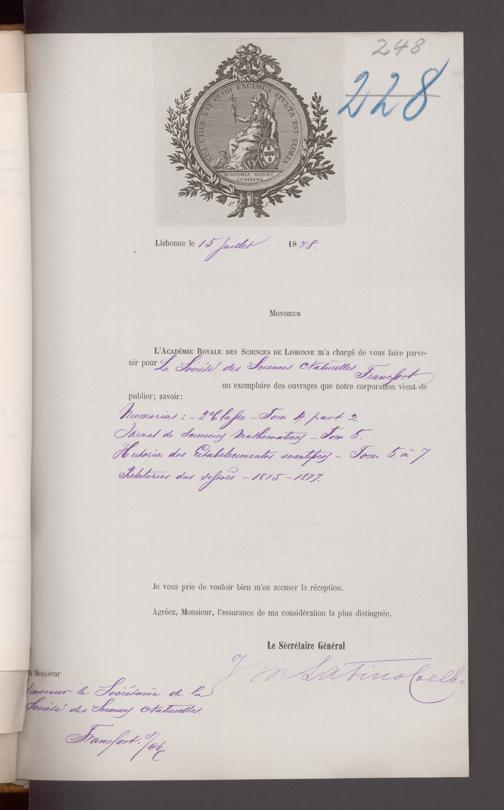 248
228
NISI UTILE EST QUOD FACIMUS STULTA EST GLORIA
ACADEMIA SCIENT.
Lisbonne le 15 Juillet 1878.
Monsieur
L'Académie Royale des Sciences de Lisbonne m'a chargé de vous faire parve-
nir pour La Société des Sciences Naturelles Francfort
un exemplaire des ouvrages que notre corporation vient de
publier; savoir:
Memorias: - 2e Classe - Tom 4 part 2.
Jornal de Sciencias Mathematicas - Tom 5.
Historia dos Estabelecimentos scientificos - Tom. 5 à 7.
Relatorios das sessões - 1875 - 1877.
Je vous prie de vouloir bien m'en accuser la réception.
Agréez, Monsieur, l'assurance de ma considération la plus distinguée.
Le Sécrétaire Général
J M Latino Coelho
Monsieur
Monsieur le Sociétaire de la
Société des Sciences Naturelles
Francfort s/